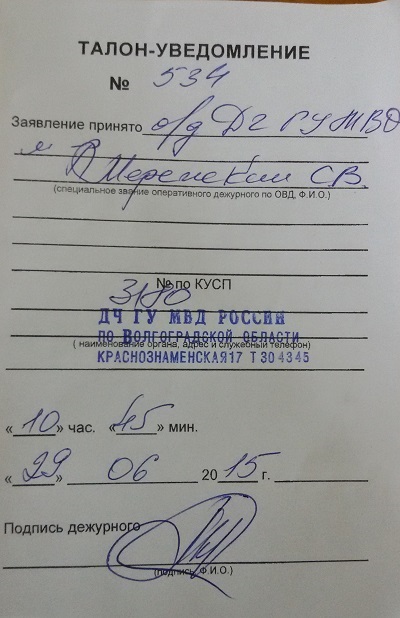 ТАЛОН-УВЕДОМЛЕНИЕ
№ 534
Заявление принято о/д ДЧ ГУ МВД
С.В.
(специальное звание оперативного дежурного по ОВД, Ф.И.О.)
№ по КУСП
3180
ДЧ ГУ МВД РОССИИ
ПО ВОЛГОГРАДСКОЙ ОБЛАСТИ
( наименование органа, адрес и служебный телефон)
КРАСНОЗНАМЕНСКАЯ17 Т304345
«10» час. «45» мин.
«29» 06 2015 г.
Подпись дежурного
(подпись, Ф.И.О.)